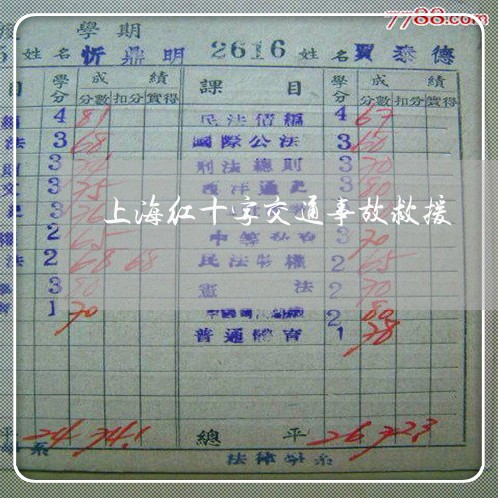 7788.com
學期
姓名忻鼎明 2616 姓名賈泰德
目 學分 成績 課目 學分 成績
分數 扣分 實得 分數 扣分 實得
4 81 民法債編 4 67
法 3 68 國際公法 3 60
3 刑法總則 3 70
3 75 西洋通史 3 80
上海红十字交通事故救援
2 65 3 70
法 2 68 68 民法物權 2 65
3 80 憲法 2 70
1 70 2 80
普通體育 1 78
平 24 74.1 總平 26 72.3
系 法律學系